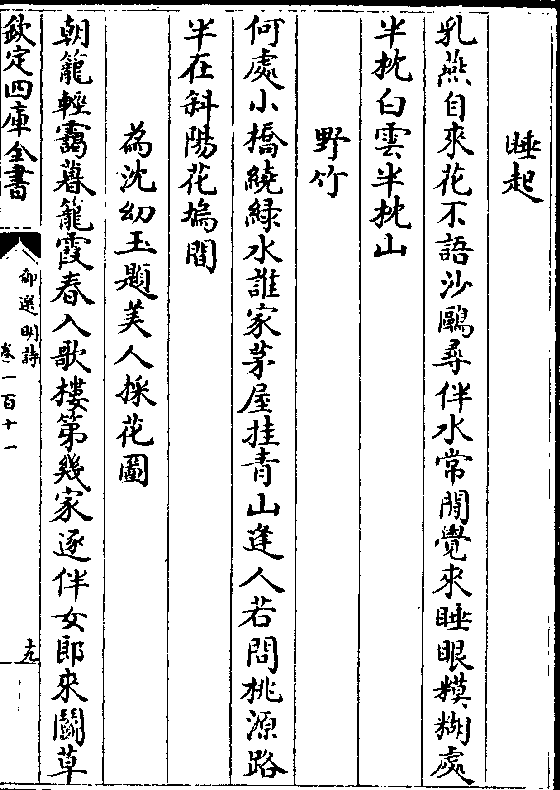 睡起
乳燕自來花不語沙鷗尋伴水常閒覺來睡眼糢糊處
半枕白雲半枕山
野竹
何處小橋繞緑水誰家茅屋挂青山逢人若問桃源路
半在斜陽花塢間
為沈幼玉題美人採花圖
朝籠輕靄暮籠霞春入歌樓第幾家逐伴女郎來鬭草
欽定四庫全書
御選明詩
卷一百十一
十九